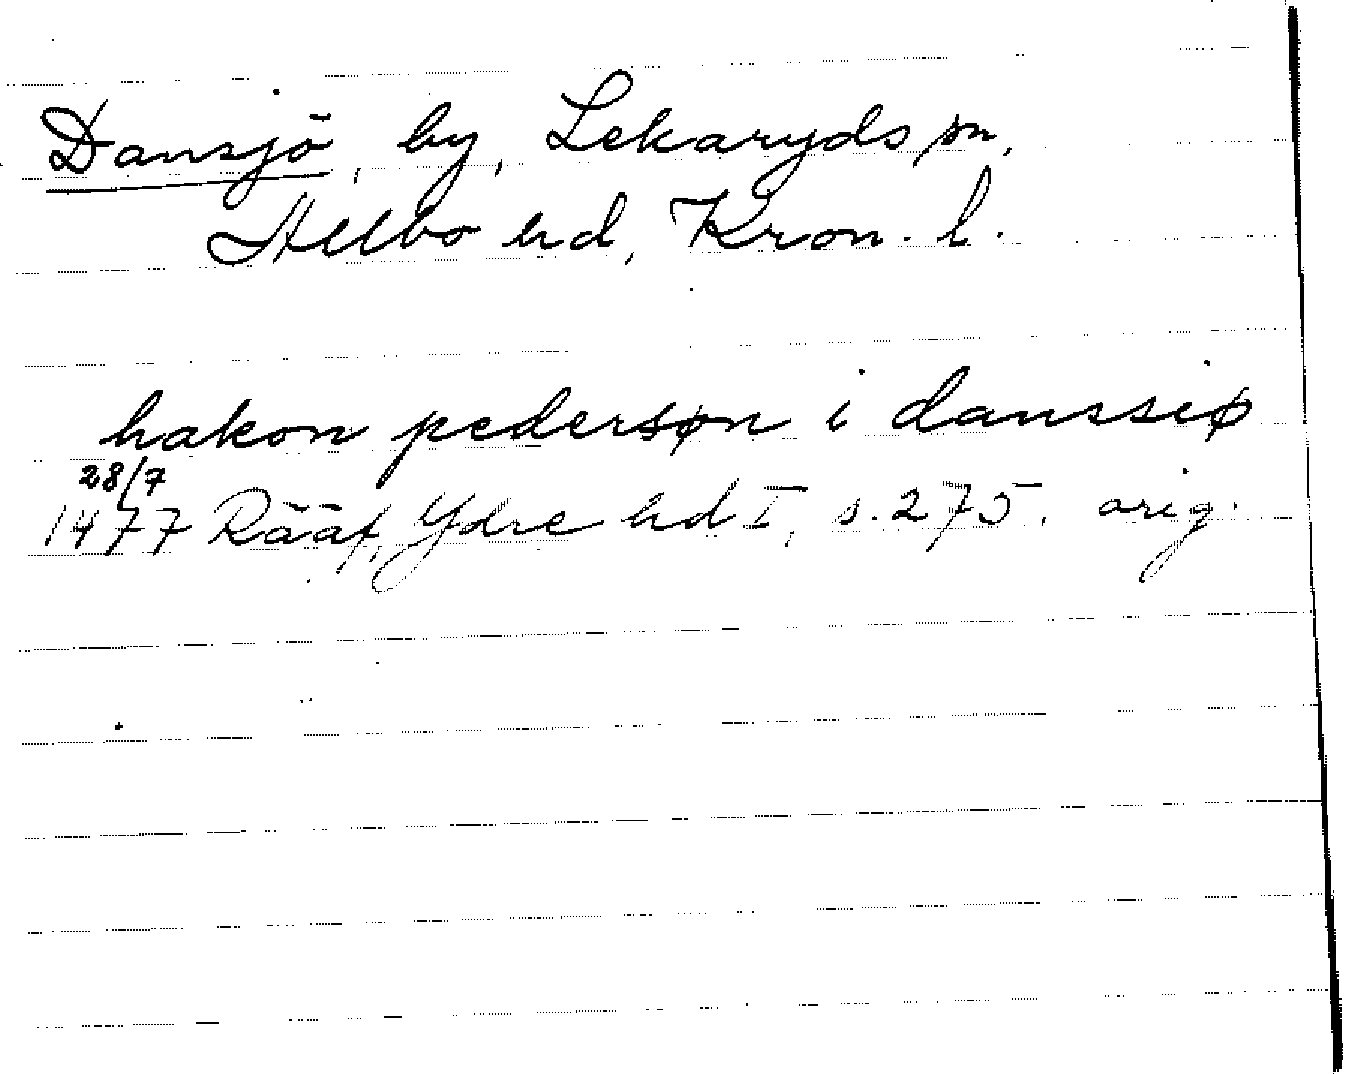 Dansjö, by, Lekaryds sn,
Allbo hd, Kron. l.
hakon pedersøn i danssiø
28/7
1477 Rääf, Ydre hd I, s. 275. orig.